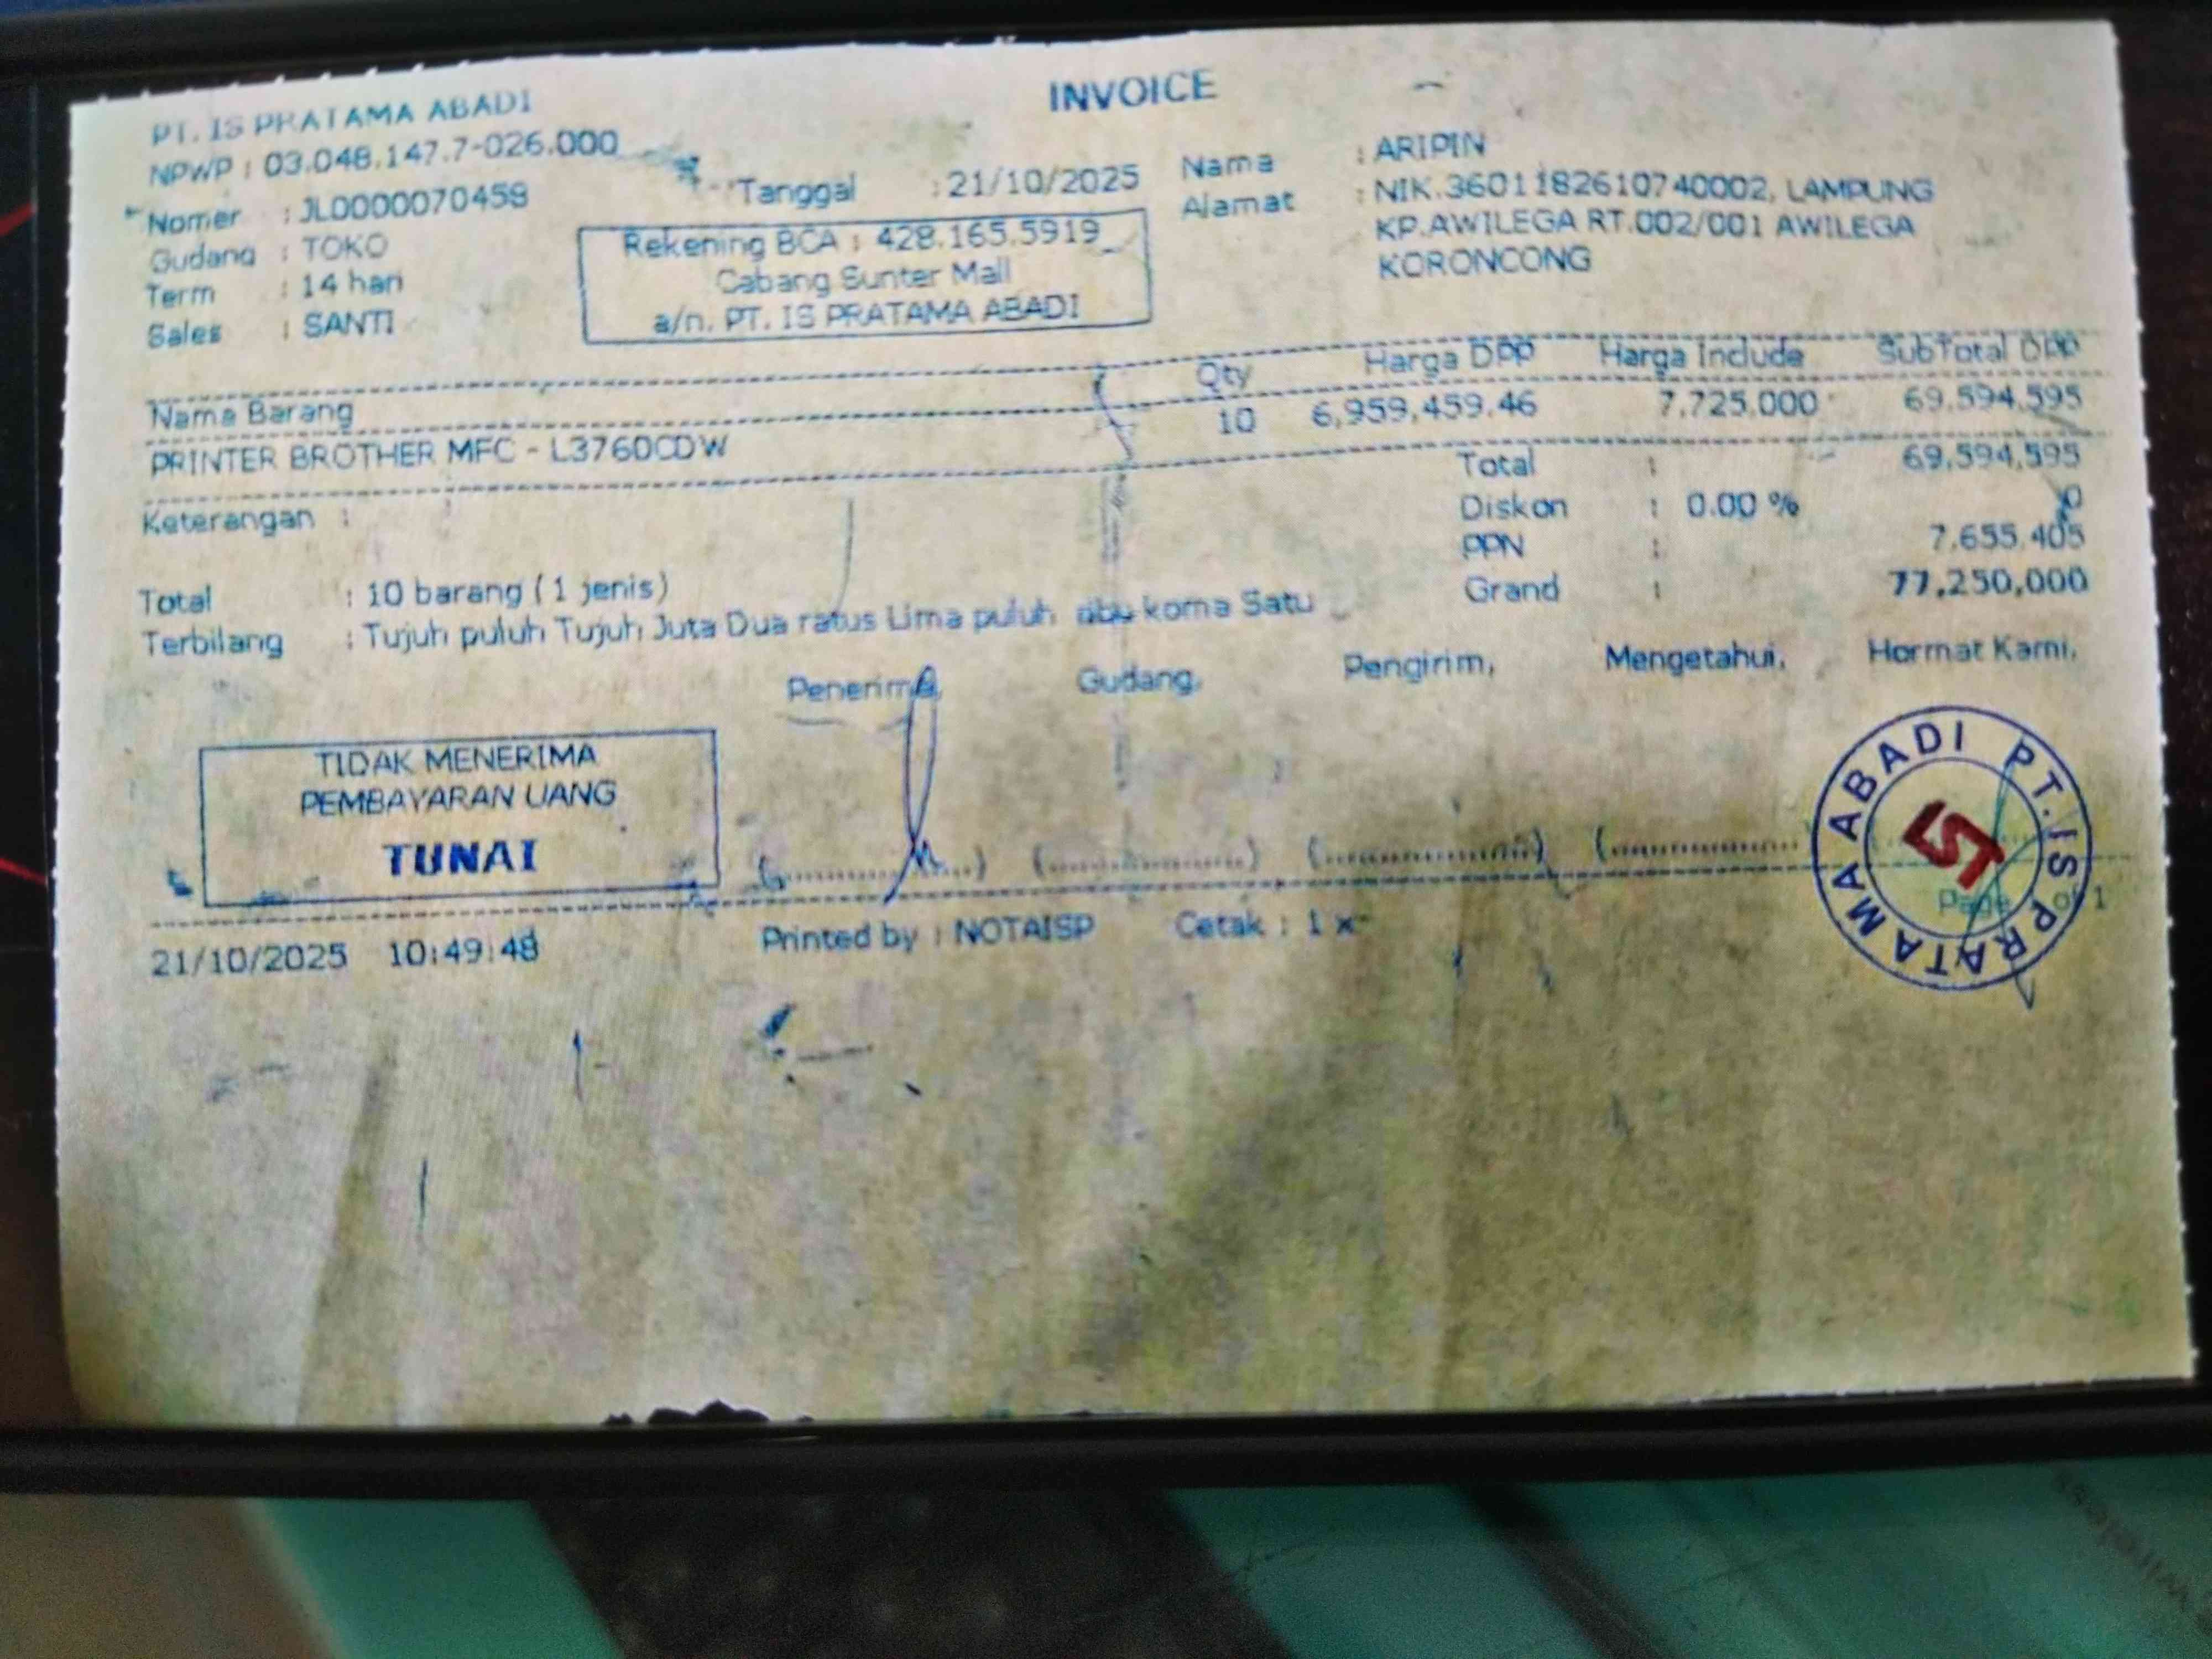 INVOICE
PT. IS PRATAMA ABADI
NPWP : 03.048.147.7-026.000
Nomer : JL0000070459
Gudang : TOKO
Term : 14 hari
Sales : SANTI
Tanggal : 21/10/2025
Rekening BCA : 428.165.5919
Cabang Sunter Mall
a/n. PT. IS PRATAMA ABADI
Nama : ARIPIN
Alamat : NIK.3601182610740002, LAMPUNG
KP.AWILEGA RT.002/001 AWILEGA
KORONCONG
Nama Barang Qty Harga DPP Harga Include SubTotal DPP
PRINTER BROTHER MFC - L3760CDW 10 6,959,459.46 7,725,000 69,594,595
Keterangan :
Total : 69,594,595
Diskon : 0.00 % 0
PPN : 7,655,405
Grand : 77,250,000
Total : 10 barang ( 1 jenis)
Terbilang : Tujuh puluh Tujuh Juta Dua ratus Lima puluh ribu koma Satu
Penerima, Gudang, Pengirim, Mengetahui, Hormat Kami,
TIDAK MENERIMA
PEMBAYARAN UANG
TUNAI
PT. IS PRATAMA ABADI
21/10/2025 10:49:48 Printed by : NOTAISP Cetak : 1 x